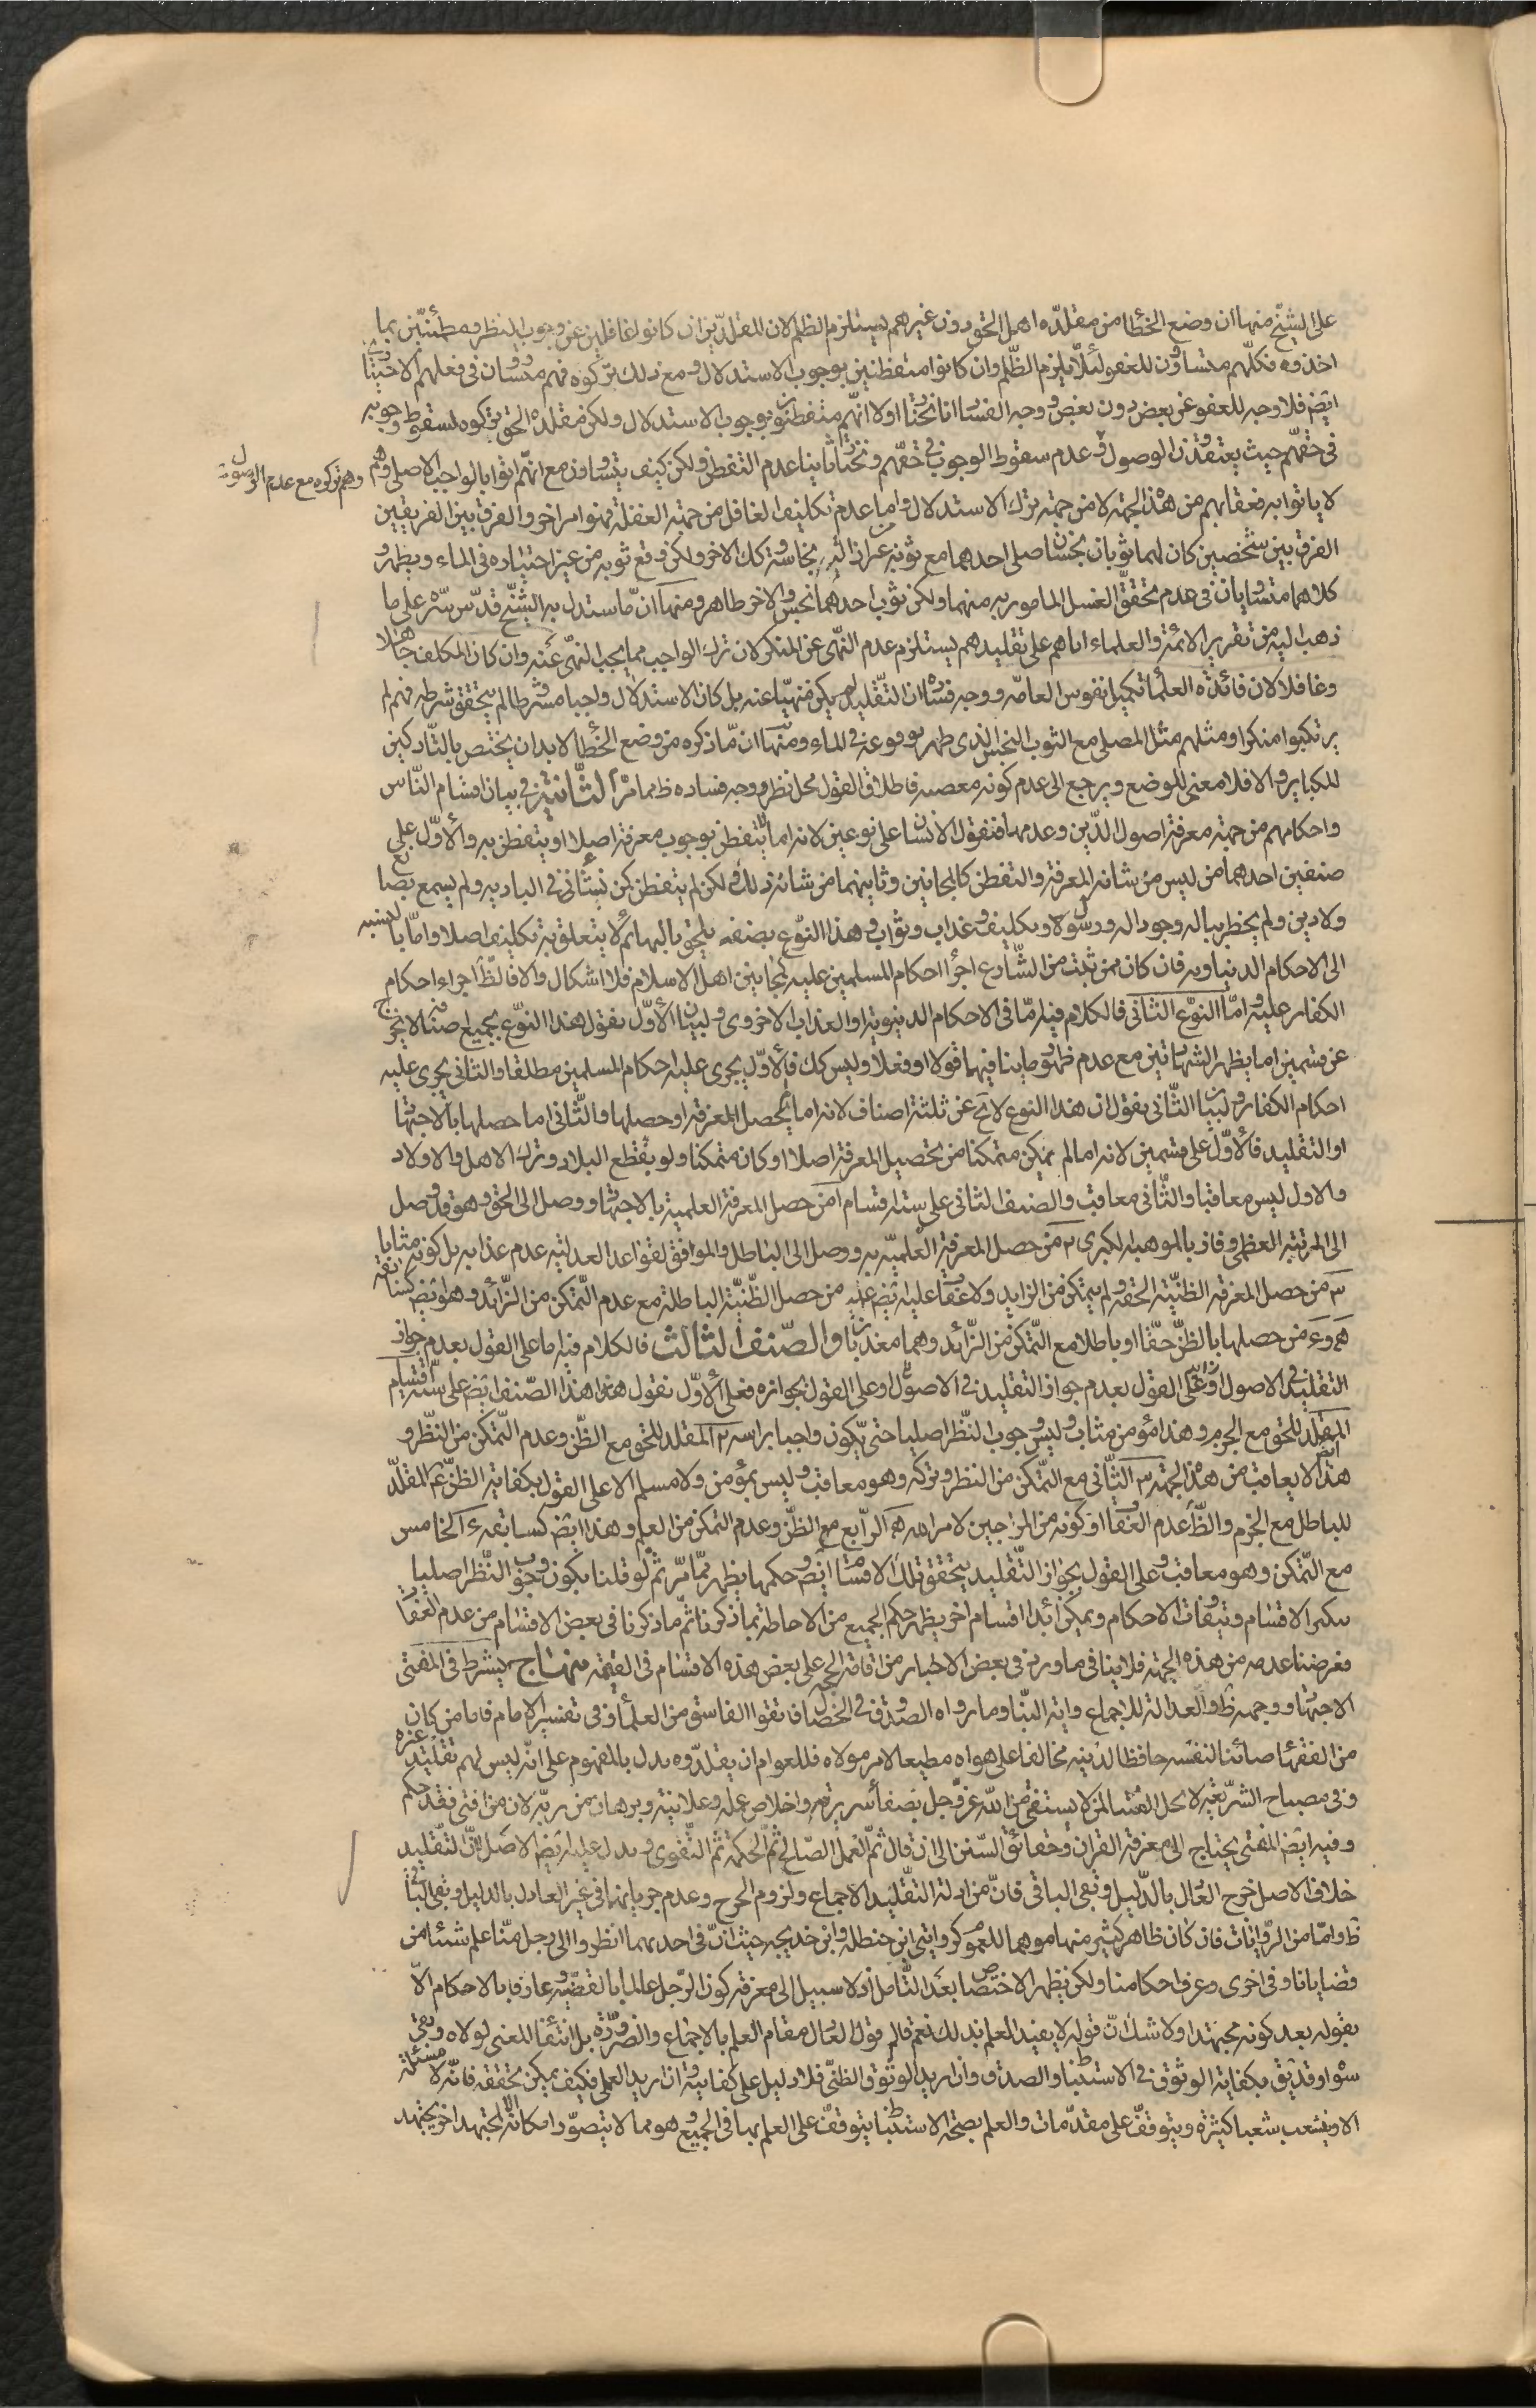 على الشيخ منها ان وضع الخطا من مقلده اهل الحق دون غيرهم يستلزم الظلم لان المقلدين ان كانوا غافلين عن وجوب النظر ومطمئنين بما
اخذوه فكلهم متساوون للعفو لئلا يلزم الظلم وان كانوا متفطنين بوجوب الاستدلال ومع ذلك تركوه فهم متساويان في فعلهم الاختياري
ايض فلا وجه للعفو عن بعض دون بعض ووجه الفساد انا نختار اولا انهم متفطنون بوجوب الاستدلال ولكن مقلده الحق تركوه لسقوط وجوبه
في حقهم حيث يعتقدون الوصول وعدم سقوط الوجوب في حقهم ونختار ثانيا عدم التفطن ولكن كيف يتساوون مع انهم اتوا بالواجب الاصلي وهم
وهم تركوه مع عدم الوصول
لا ياتوا به فعقابهم من هذا الجهة لا من جهة ترك الاستدلال واما عدم تكليف الغافل من جهة الغفلة فهو امر اخر والفرق بين الفريقين
الفرق بين شخصين كان لهما ثوبان نجسان صلى احدهما مع ثوبه من غير ازالة نجاسته وكك الاخر ولكن وقع ثوبه من غير اختياره في الماء ويطهر و
كلاهما متساويان في عدم تحقق الغسل المامور به منهما ولكن ثوب احدهما نجس والاخر طاهر ومنها ان ما استدل به الشيخ قدس سره على ما
ذهب اليه من تقرير الائمة والعلماء اياهم على تقليدهم يستلزم عدم النهى عن المنكر لان ترك الواجب مما يجب النهى عنه وان كان المكلف جاهلا
وغافلا لان فائدة العلماء تكميل نفوس العامة ووجه فساده ان التقليد لم يكن منهيا عنه بل كان الاستدلال واجبا مشرطا لم يتحقق شرطه فهم لم
يرتكبوا منكرا ومثلهم مثل المصلى مع الثوب النجس الذى طهر بوقوعه في الماء ومنها ان ما ذكره من وضع الخطا لا بد ان يختص بالتاركين
للكباير والا فلا معنى للوضع ويرجع الى عدم كونه معصيه فاطلاق القول محل نظر ووجه فساده ظ مما مر الثانية في بيان اقسام الناس
واحكامهم من جهة معرفة اصول الدين وعدمها فنقول الانسان على نوعين لانه اما لم يتفطن بوجوب معرفة اصلا او يتفطن به والاول على
صنفين احدهما من ليس من شانه المعرفة والتفطن كالمجانين وثانيهما من شانه ذلك ولكن لم يتفطن كمن نشأ في البادية ولم يسمع بصانع
ولا دين ولم يخطر بباله وجود اله ورسول ولا تكليف وعذاب وثواب وهذا النوع بصنفيه يلحق بالبهائم لا يتعلق به تكليف اصلا واما بالنسبه
الى الاحكام الدنياويه فان كان ممن ثبت من الشارع اجراء احكام المسلمين عليه كمجانين اهل الاسلام فلا اشكال والا فالظ اجراء احكام
الكفار عليه واما النوع الثاني فالكلام فيه اما في الاحكام الدنيوية او العذاب الاخروى ولبيان الاول نقول هذا النوع بجميع اصنافه لا يخرج
عن قسمين اما يظهر الشهادتين مع عدم ظهور ما ينافيهما قولا او فعلا وليس كك فالاول يجرى عليه احكام المسلمين مطلقا والثاني يجرى عليه
احكام الكفار ولبيان الثاني نقول ان هذا النوع لا يخ عن ثلثة اصناف لانه اما لم يحصل المعرفة او حصلها والثاني اما حصلها بالاجتهاد
او التقليد فالاول على قسمين لانه اما لم يكن متمكنا من تحصيل المعرفة اصلا او كان متمكنا ولو بقطع البلاد وترك الاهل والاولاد
والاول ليس معاقبا والثاني معاقب والصنف الثاني على ستة اقسام ا من حصل المعرفة العلمية بالاجتهاد ووصل الى الحق وهو قد وصل
الى المرتبة العظمى وفاز بالموهبة الكبرى ٢ من حصل المعرفة العلمية به ووصل الى الباطل والموافق لقواعد العدلية عدم عذابه بل كونه مثابا
٣ من حصل المعرفة الظنية الحقة ولم يتمكن من الزايد ولا عقاب عليه ايض ٤ من حصل الظنية الباطلة مع عدم التمكن من الزائد وهو ايض كسابقه
٥ و ٦ من حصلها بالظن حقا او باطلا مع التمكن من الزائد وهما معذبان والصنف الثالث فالكلام فيه اما على القول بعدم جواز
التقليد في الاصول او على القول بعدم جواز التقليد في الاصول وعلى القول بجوازه فعلى الاول نقول هذا الصنف ايض على ستة اقسام
المقلد للحق مع الجزم وهذا مؤمن مثاب وليس وجوب النظر اصليا حتى يكون واجبا براسه ٢ المقلد للحق مع الظن وعدم التمكن من النظر و
هذا ايض لا يعاقب من هذا الجهة ٣ الثاني مع التمكن من النظر وتركه وهو معاقب وليس بمؤمن ولا مسلم الا على القول بكفاية الظن ٤ المقلد
للباطل مع الجزم والظ عدم العقاب او كونه من المرجين لامر الله ٥ الرابع مع الظن وعدم التمكن من العلم وهذا ايض كسابقه ٦ الخامس
مع التمكن وهو معاقب وعلى القول بجواز التقليد يتحقق تلك الاقسام ايض وحكمها يظهر مما مر ثم لو قلنا بكون وجوب النظر اصليا
يكثر الاقسام وتتفاوت الاحكام ويمكن ابداء اقسام اخر يظهر حكم الجميع من الاحاطة بما ذكرنا ثم ما ذكرنا في بعض الاقسام من عدم العقاب
فغرضنا عدمه من هذه الجهة فلا ينافي ما ورد في بعض الاخبار من اقامة الحجة على بعض هذه الاقسام في القيمة منهاج يشترط في المفتى
الاجتهاد ووجهه ظ والعدالة للاجماع واية النبا وما رواه الصدوق في الخصال فاتقوا الفاسق من العلماء وفي تفسير الامام فاما من كان
من الفقهاء صائنا لنفسه حافظا لدينه مخالفا على هواه مطيعا لامر مولاه فللعوام ان يقلدوه يدل بالمفهوم على انه ليس لهم تقليد غيره
وفي مصباح الشريعة لا يحل الفتيا لمن لا يستفتى من الله عز وجل بصفاء سريرته واخلاص عمله وعلانيته وبرهان من ربه لان من افتى فقد حكم
وفيه ايض المفتى يحتاج الى معرفة القران وحقائق السنن الى ان قال ثم العمل الصالح ثم الحكمة ثم التقوى ويدل عليه ايض الاصل لان التقليد
خلاف الاصل خرج العدل بالدليل وبقى الباقى فان من ادلة التقليد الاجماع ولزوم الحرج وعدم جريانهما في غير العادل بالدليل وبقى الباقى
ظ واما من الروايات فان كان ظاهر كثير منها موهما للعموم كروايتى ابن حنظله وابن خديجه حيث ان في احديهما انظروا الى رجل منا علم شيئا من
قضايانا وفي اخرى وعرف احكامنا ولكن يظهر الاختصاص بعد التامل اذ لا سبيل الى معرفة كون الرجل عالما بالقضية عارفا بالاحكام الا
بقوله بعد كونه مجتهدا ولا شك ان قوله لا يفيد العلم بذلك نعم قام قول العدل مقام العلم بالاجماع والضرورة بل انتفاء المعنى لولاه وبقى
سواه وقد يق بكفاية الوثوق في الاستنباط والصدق وان اريد الوثوق الظنى فلا دليل على كفايته وان اريد العلمى فكيف يمكن تحققه فانه لا مسئلة
الا وتشعب شعبا كثيرة ويتوقف على مقدمات والعلم بصحة الاستنباط يتوقف على العلم بها في الجميع وهو مما لا يتصور امكانه لمجتهد اخر يجتهد